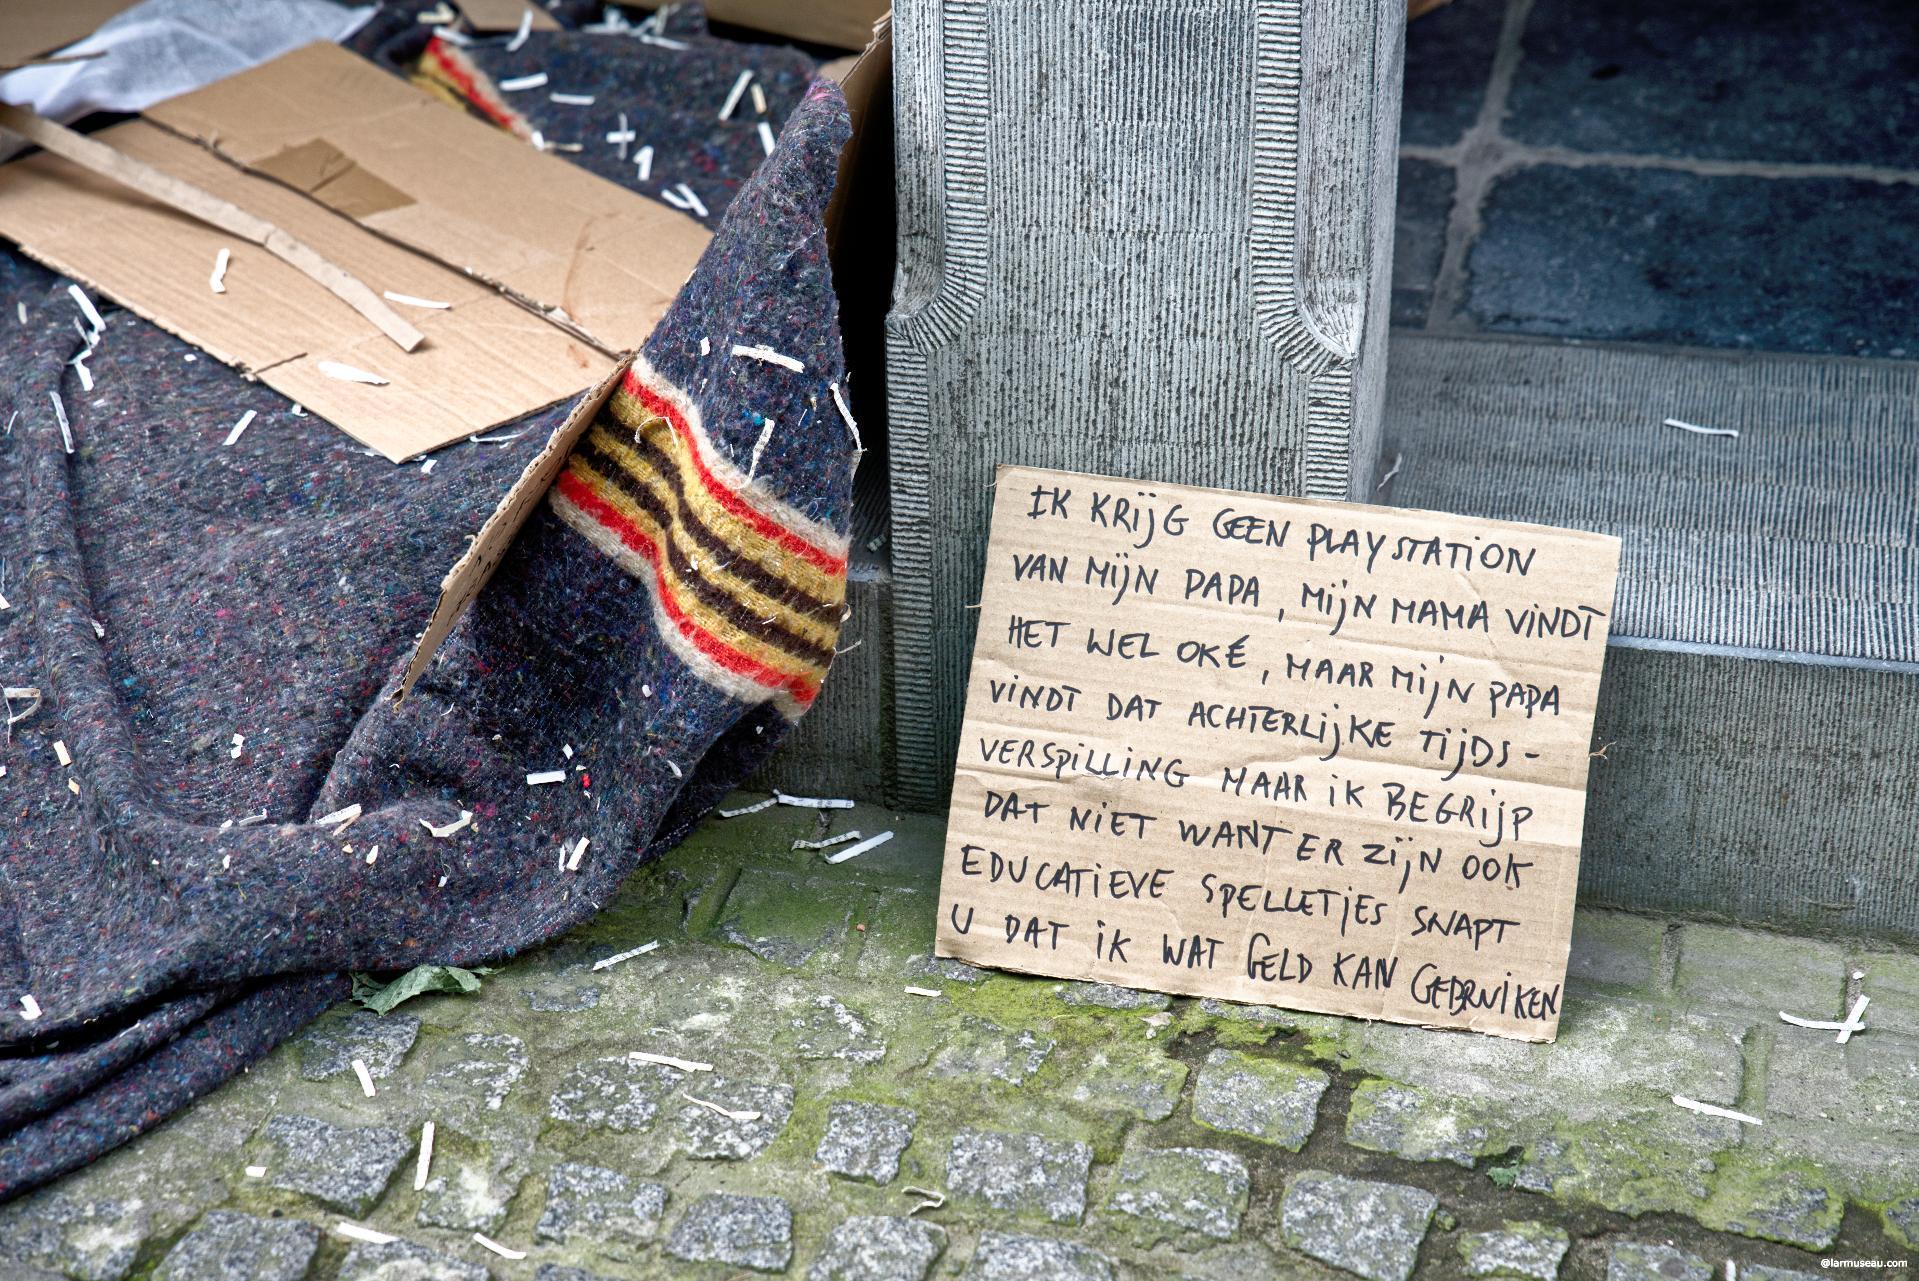 IK KRIJG GEEN PLAYSTATION
VAN MIJN PAPA, MIJN MAMA VINDT
HET WEL OKÉ, MAAR MIJN PAPA
VINDT DAT ACHTERLIJKE TIJDS-
VERSPILLING MAAR IK BEGRIJP
DAT NIET WANT ER ZIJN OOK
EDUCATIEVE SPELLETJES SNAPT
U DAT IK WAT GELD KAN GEBRUIKEN
@larmuseau.com